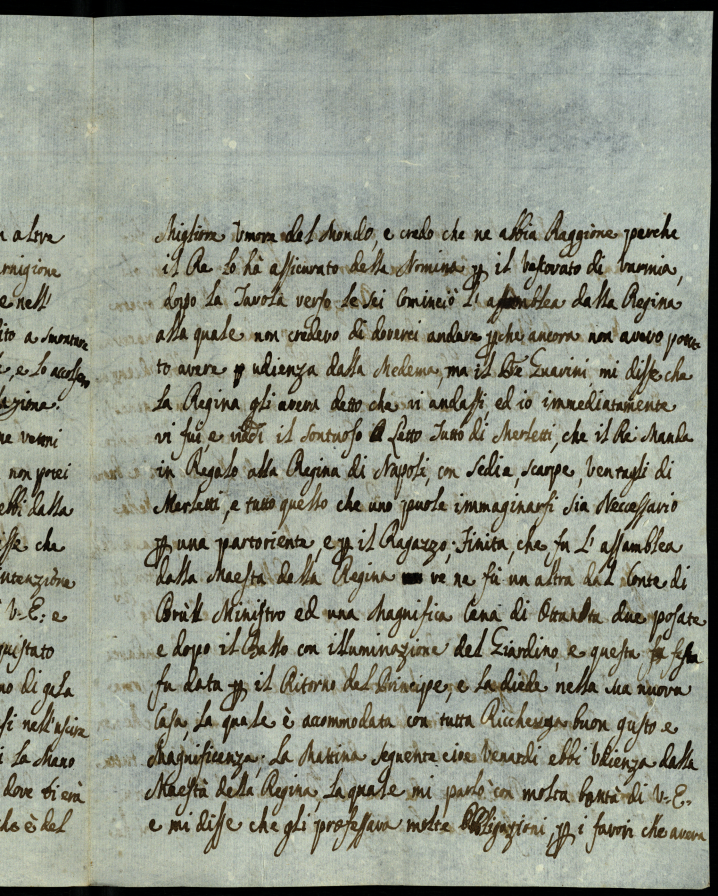 a altre
arnigione
e nell'
ito a smontare
e, e lo accolsero
lazione.
me venni
non potei
ebbi dalla
isse che
intenzione
V. E: e
quistato
no di gala
si nell'uscire
i la Mano
dove si era
che è del
Migliore Umore del Mondo, e credo che ne abbia Raggione perche
il Re lo hà assicurato della Nomina p il Vescovato di Varmia,
dopo la Tavola verso le sei Cominciò l'assemblea dalla Regina
alla quale non credevo di doverci andare pche ancora non avevo potu-
to avere udienza dalla Medema, ma il Pre Guarini mi disse che
la Regina gli aveva detto che vi andassi ed io immediatamente
vi fui, e viddi il sontuoso Letto Tutto di Merletti, che il Rè Manda
in Regalo alla Regina di Napoli, con Sedia, Scarpe, Ventagli di
Merletti, e tutto quello che uno puole immaginarsi sia Neccessario
p una partoriente, e p il Ragazzo; Finita, che fu l'assamblea
dalla Maesta della Regina ve ne fù un altra dal Conte di
Brùll Ministro ed una Magnifica Cena di Ottanta due posate
e dopo il Ballo con illuminazione del Giardino, e questa festa
fu data p il Ritorno del Principe, e la diede nella sua nuova
Casa, la quale è accommodata con tutta Ricchezza buon gusto e
Magnificenza; La Mattina seguente cioe Venardi ebbi Udienza dalla
Maestà della Regina, la quale mi parlò con molta bontà di V. E.
e mi disse che gli professava molte Obligazioni p i favori che aveva